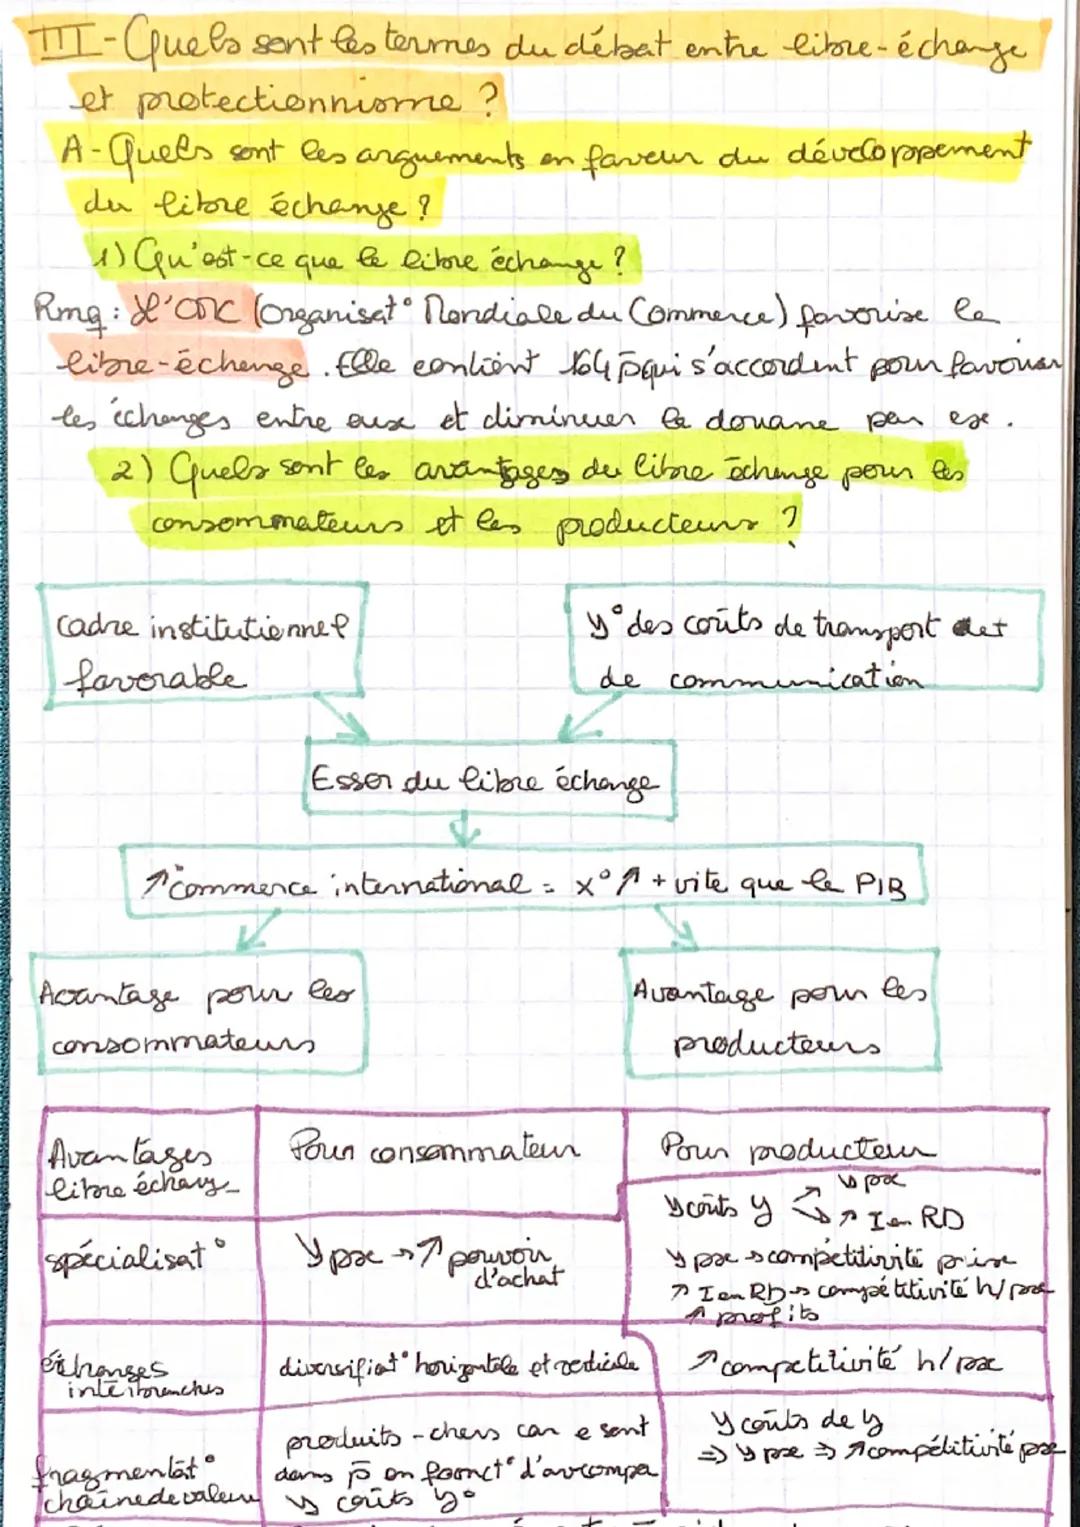 III-Quels sont les termes du débat entre libre-échange
et protectionnisme ?
A-Quels sont les arguements en faveur du développement
du libre échange ?
1) Qu'est-ce que le libre échange ?
Rmq : L'OMC (Organisat° Mondiale du Commerce) favorise le
libre-échange. Elle contient 164 p̄ qui s'accordent pour favoriser
les échanges entre eux et diminuer la douane par ex.
2) Quels sont les avantages du libre échange pour les
consommateurs et les producteurs ?
Cadre institutionnel
favorable
y° des coûts de transport et
de communication
Essor du libre échange
↗ commerce international = x° ↗ + vite que le PIB
Avantage pour les
consommateurs
Avantage pour les
producteurs
Avantages
libre échang
Pour consommateur
Pour producteur
spécialisat°
y px → ↗ pouvoir
d'achat
y coûts y
↘ px
↗ I en RD
y px → compétitivité prix
↗ I en RD → compétitivité h/px
↗ profits
échanges
interbranches
diversifiat° horizontale et verticale
↗ competitivité h/px
fragmentat°
chaîne de valeur
produits - chers car e sont
dans p̄ en foonct° d'av compa
↘ coûts y°
y coûts de y
⇒ y px ⇒ ↗ compétitivité px